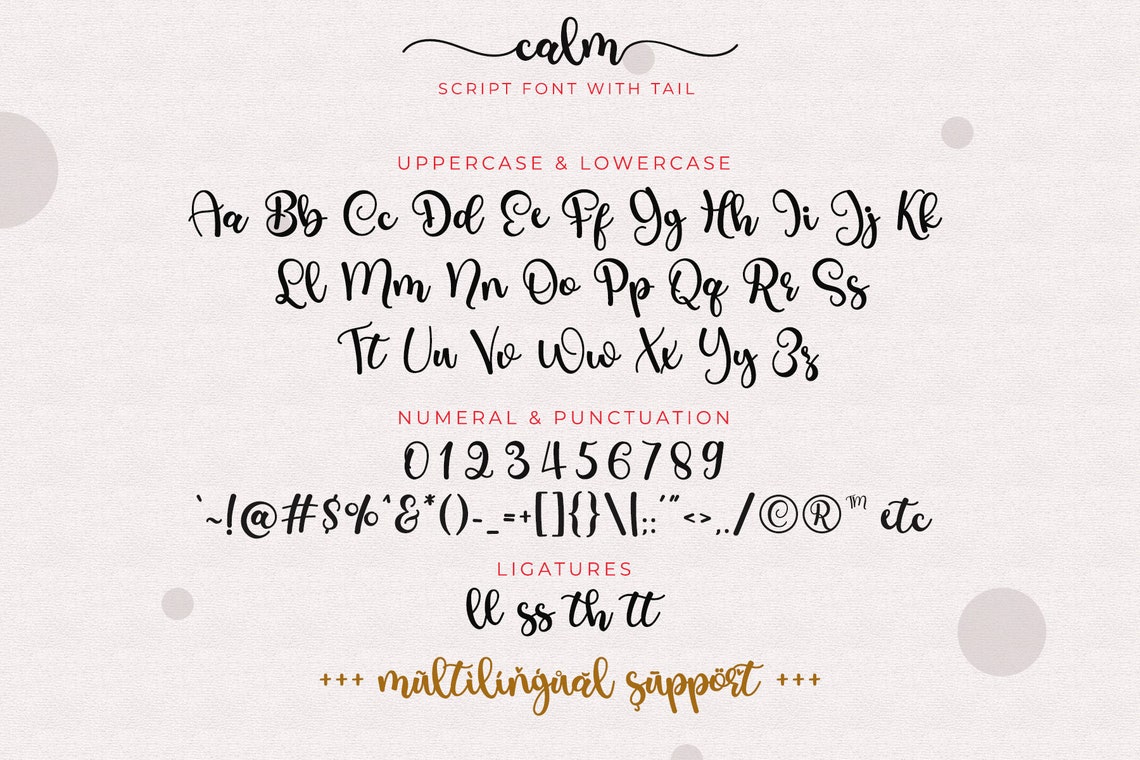 calm
SCRIPT FONT WITH TAIL
UPPERCASE & LOWERCASE
Aa Bb Cc Dd Ee Ff Gg Hh Ii Jj Kk
Ll Mm Nn Oo Pp Qq Rr Ss
Tt Uu Vv Ww Xx Yy Zz
NUMERAL & PUNCTUATION
0 1 2 3 4 5 6 7 8 9
`~!@#$%^&*()-_=+[]{}\|;:'"<>,./©®™ etc
LIGATURES
ll ss th tt
+++ mũltilíňġůãl şūppöřt +++